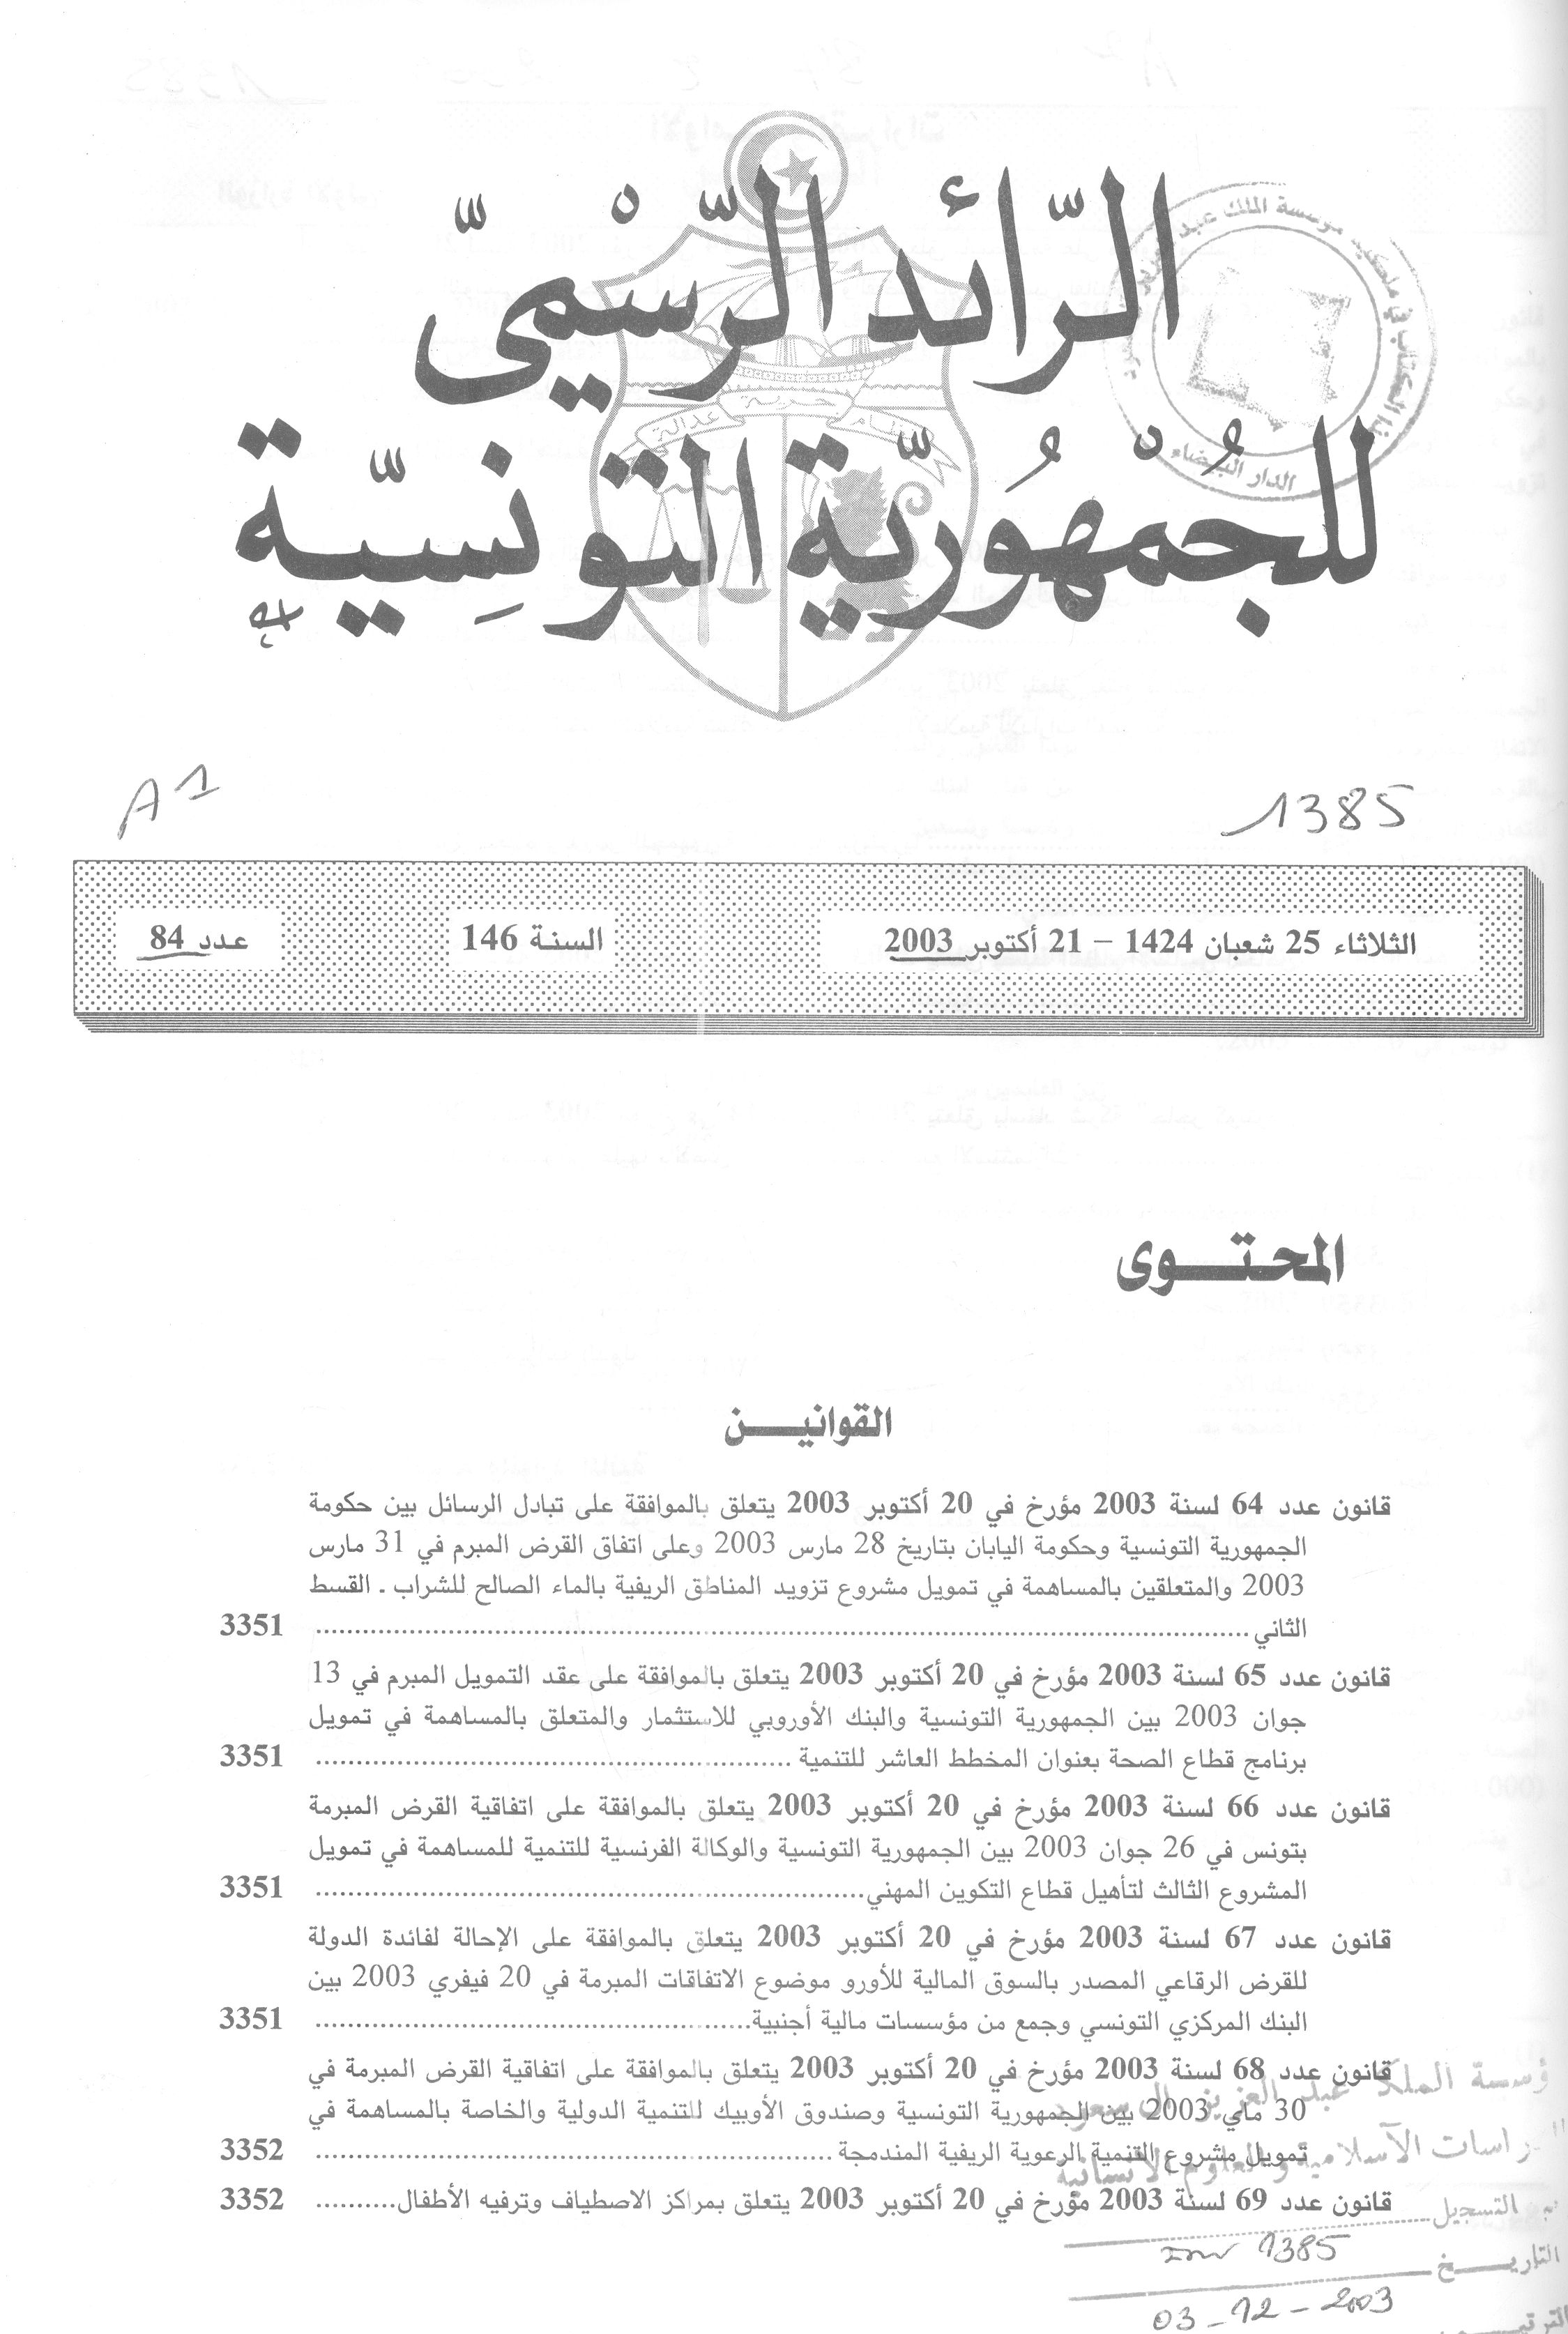 الرّائد الرّسْميّ
للجُمْهُوريّة التونِسيّة
نظام حرية عدالة
الدار البيضاء
A1
1385
الثلاثاء 25 شعبان 1424 – 21 أكتوبر 2003
السنة 146
عدد 84
المحتوى
القوانين
قانون عدد 64 لسنة 2003 مؤرخ في 20 أكتوبر 2003 يتعلق بالموافقة على تبادل الرسائل بين حكومة
الجمهورية التونسية وحكومة اليابان بتاريخ 28 مارس 2003 وعلى اتفاق القرض المبرم في 31 مارس
2003 والمتعلقين بالمساهمة في تمويل مشروع تزويد المناطق الريفية بالماء الصالح للشراب ـ القسط
الثاني ........ 3351
قانون عدد 65 لسنة 2003 مؤرخ في 20 أكتوبر 2003 يتعلق بالموافقة على عقد التمويل المبرم في 13
جوان 2003 بين الجمهورية التونسية والبنك الأوروبي للاستثمار والمتعلق بالمساهمة في تمويل
برنامج قطاع الصحة بعنوان المخطط العاشر للتنمية ........ 3351
قانون عدد 66 لسنة 2003 مؤرخ في 20 أكتوبر 2003 يتعلق بالموافقة على اتفاقية القرض المبرمة
بتونس في 26 جوان 2003 بين الجمهورية التونسية والوكالة الفرنسية للتنمية للمساهمة في تمويل
المشروع الثالث لتأهيل قطاع التكوين المهني ........ 3351
قانون عدد 67 لسنة 2003 مؤرخ في 20 أكتوبر 2003 يتعلق بالموافقة على الإحالة لفائدة الدولة
للقرض الرقاعي المصدر بالسوق المالية للأورو موضوع الاتفاقات المبرمة في 20 فيفري 2003 بين
البنك المركزي التونسي وجمع من مؤسسات مالية أجنبية ........ 3351
قانون عدد 68 لسنة 2003 مؤرخ في 20 أكتوبر 2003 يتعلق بالموافقة على اتفاقية القرض المبرمة في
30 ماي 2003 بين الجمهورية التونسية وصندوق الأوبيك للتنمية الدولية والخاصة بالمساهمة في
تمويل مشروع التنمية الرعوية الريفية المندمجة ........ 3352
قانون عدد 69 لسنة 2003 مؤرخ في 20 أكتوبر 2003 يتعلق بمراكز الاصطياف وترفيه الأطفال ........ 3352
ؤسسة الملك عبد العزيز آل سعود
راسات الآسلامية والعلوم الانسانية
التسجيل
1385
التاريخ
03-12-2003